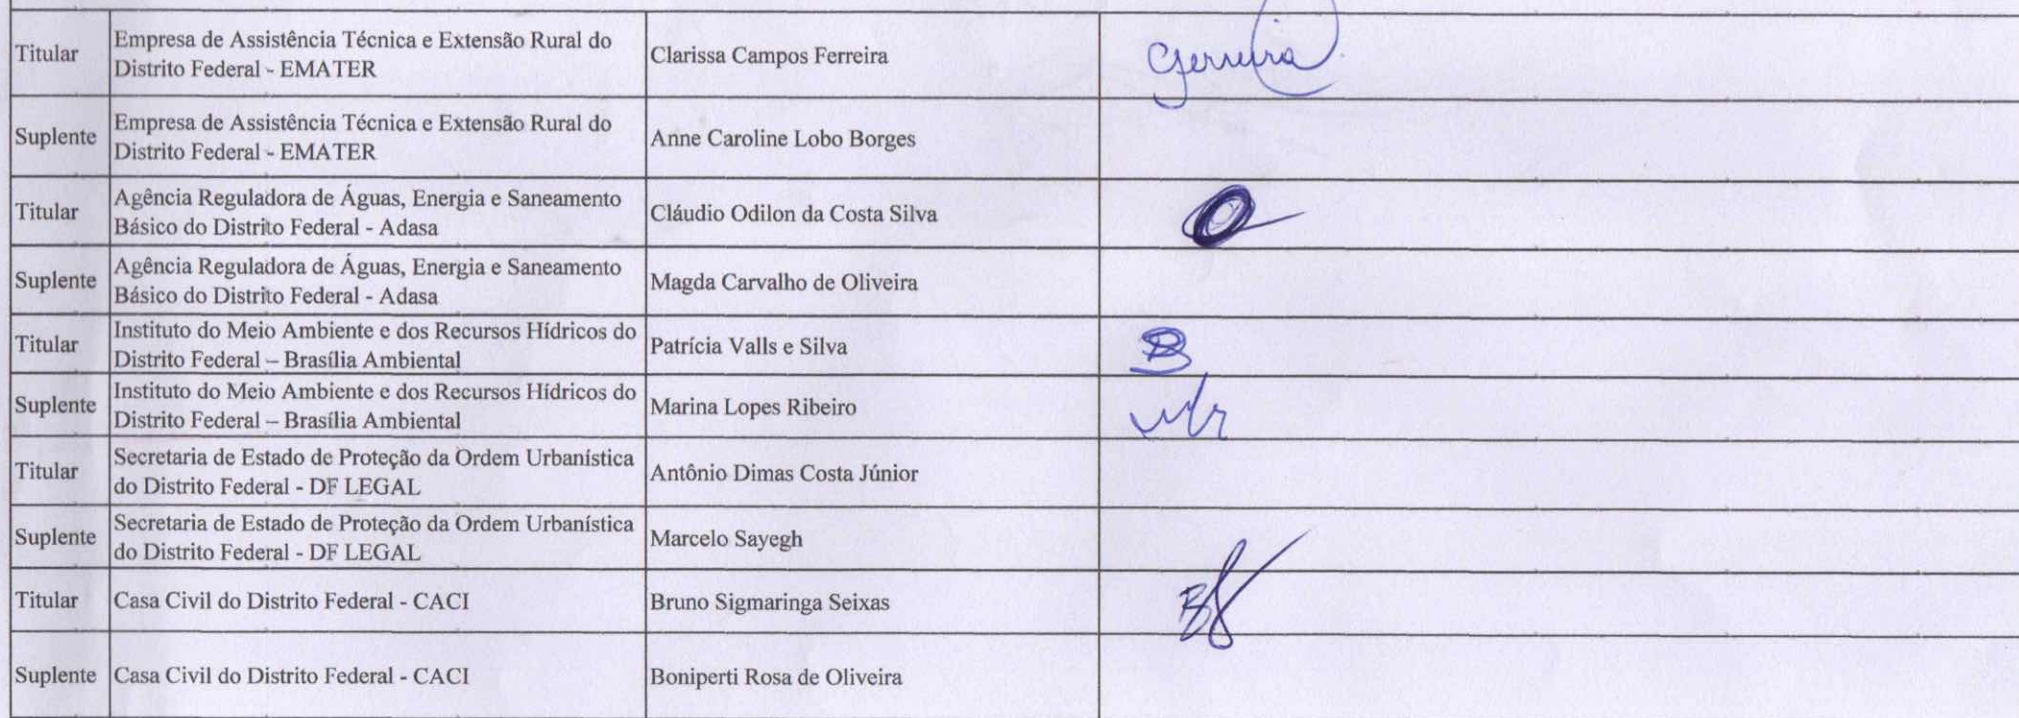 Titular
Empresa de Assistência Técnica e Extensão Rural do
Distrito Federal - EMATER
Clarissa Campos Ferreira
CFerreira
Suplente
Empresa de Assistência Técnica e Extensão Rural do
Distrito Federal - EMATER
Anne Caroline Lobo Borges
Titular
Agência Reguladora de Águas, Energia e Saneamento
Básico do Distrito Federal - Adasa
Cláudio Odilon da Costa Silva
Suplente
Agência Reguladora de Águas, Energia e Saneamento
Básico do Distrito Federal - Adasa
Magda Carvalho de Oliveira
Titular
Instituto do Meio Ambiente e dos Recursos Hídricos do
Distrito Federal – Brasília Ambiental
Patrícia Valls e Silva
Suplente
Instituto do Meio Ambiente e dos Recursos Hídricos do
Distrito Federal – Brasília Ambiental
Marina Lopes Ribeiro
Titular
Secretaria de Estado de Proteção da Ordem Urbanística
do Distrito Federal - DF LEGAL
Antônio Dimas Costa Júnior
Suplente
Secretaria de Estado de Proteção da Ordem Urbanística
do Distrito Federal - DF LEGAL
Marcelo Sayegh
Titular
Casa Civil do Distrito Federal - CACI
Bruno Sigmaringa Seixas
Suplente
Casa Civil do Distrito Federal - CACI
Boniperti Rosa de Oliveira